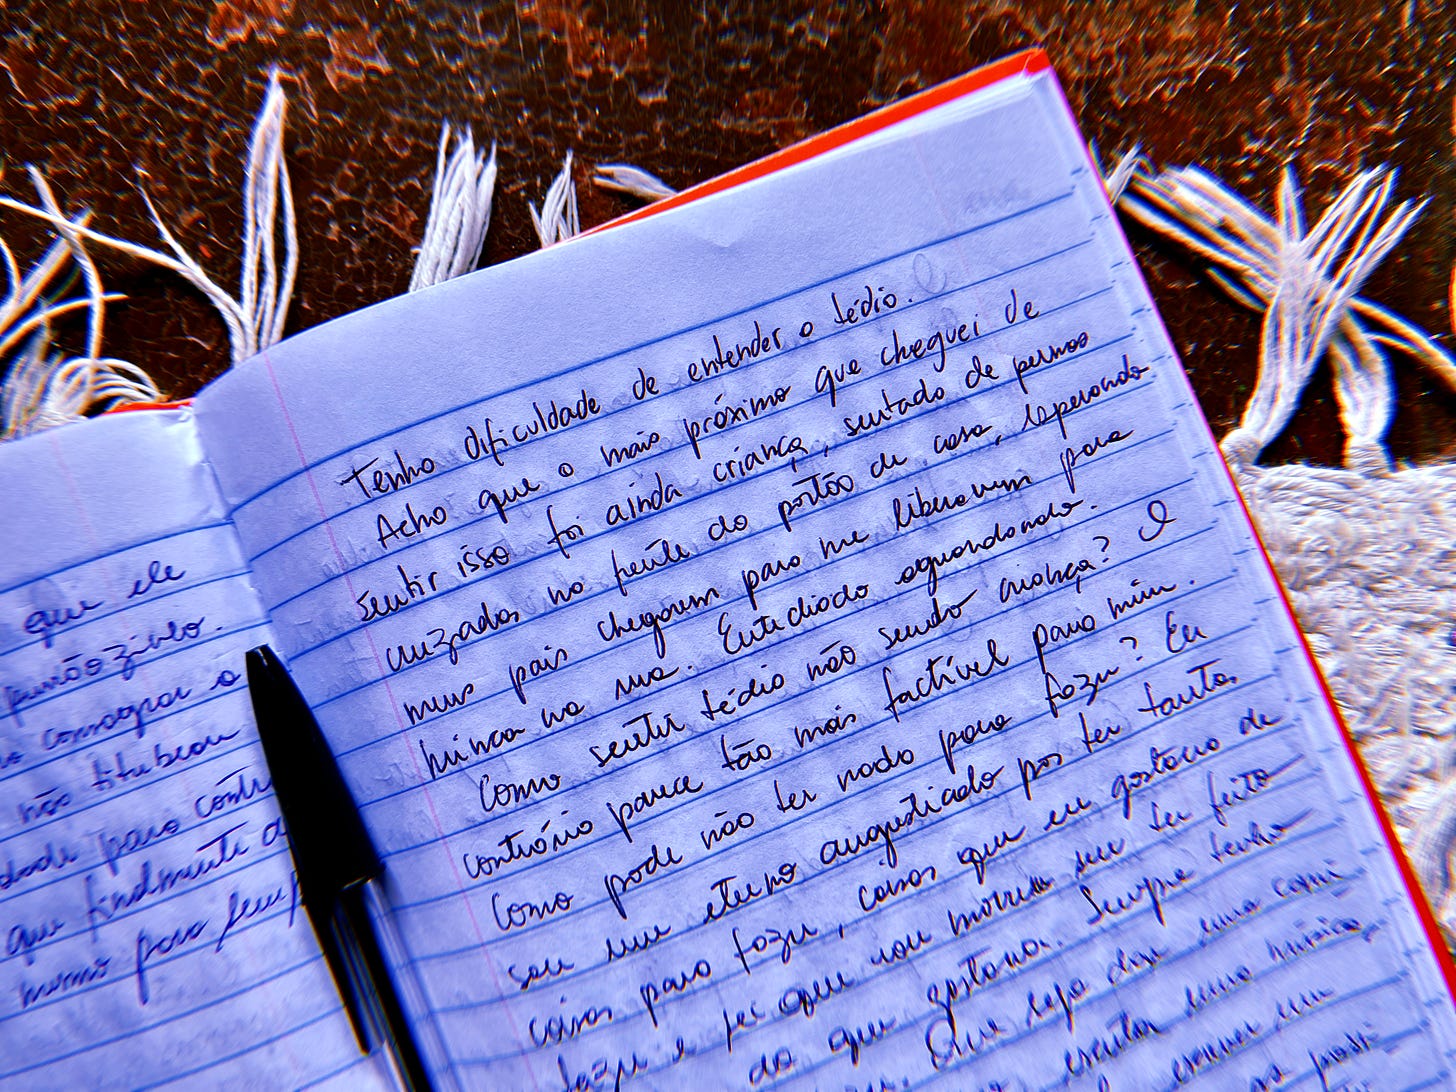 que ele
no consagrar o
não titubeou
dade para contr
que finalmente a
mesmo para sem
Tenho dificuldade de entender o tédio.
Acho que o mais próximo que cheguei de
sentir isso foi ainda criança, sentado de pernas
cruzadas na frente do portão de casa, esperando
meus pais chegarem para me liberarem para
brincar na rua. Entediado aguardando.
Como sentir tédio não sendo criança? O
contrário parece tão mais factível para mim.
Como pode não ter nada para fazer? Eu
sou um eterno angustiado por ter tantas
coisas para fazer, coisas que eu gostaria de
fazer e sei que vou morrer sem ter feito
do que gostaria. Sempre tenho
Que seja dar uma cami
escutar uma música,
escrever um